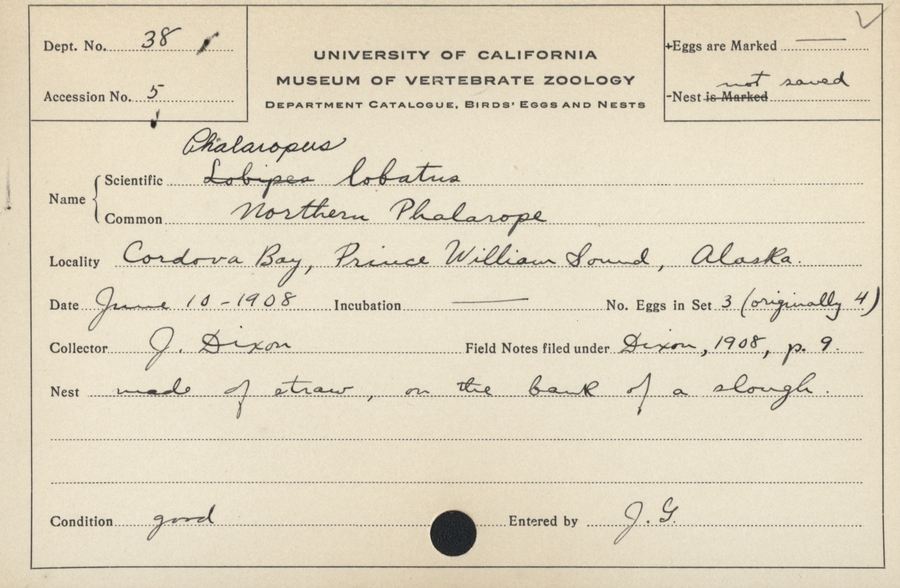 Dept. No. 38
Accession No. 5
UNIVERSITY OF CALIFORNIA
MUSEUM OF VERTEBRATE ZOOLOGY
DEPARTMENT CATALOGUE, BIRDS' EGGS AND NESTS
+Eggs are Marked —
not saved
-Nest is Marked
Phalaropus
Name Scientific Lobipes lobatus
Common Northern Phalarope
Locality Cordova Bay, Prince William Sound, Alaska.
Date June 10-1908 Incubation — No. Eggs in Set 3 (originally 4)
Collector J. Dixon Field Notes filed under Dixon, 1908, p. 9.
Nest made of straw, on the bank of a slough.
Condition good Entered by J. G.